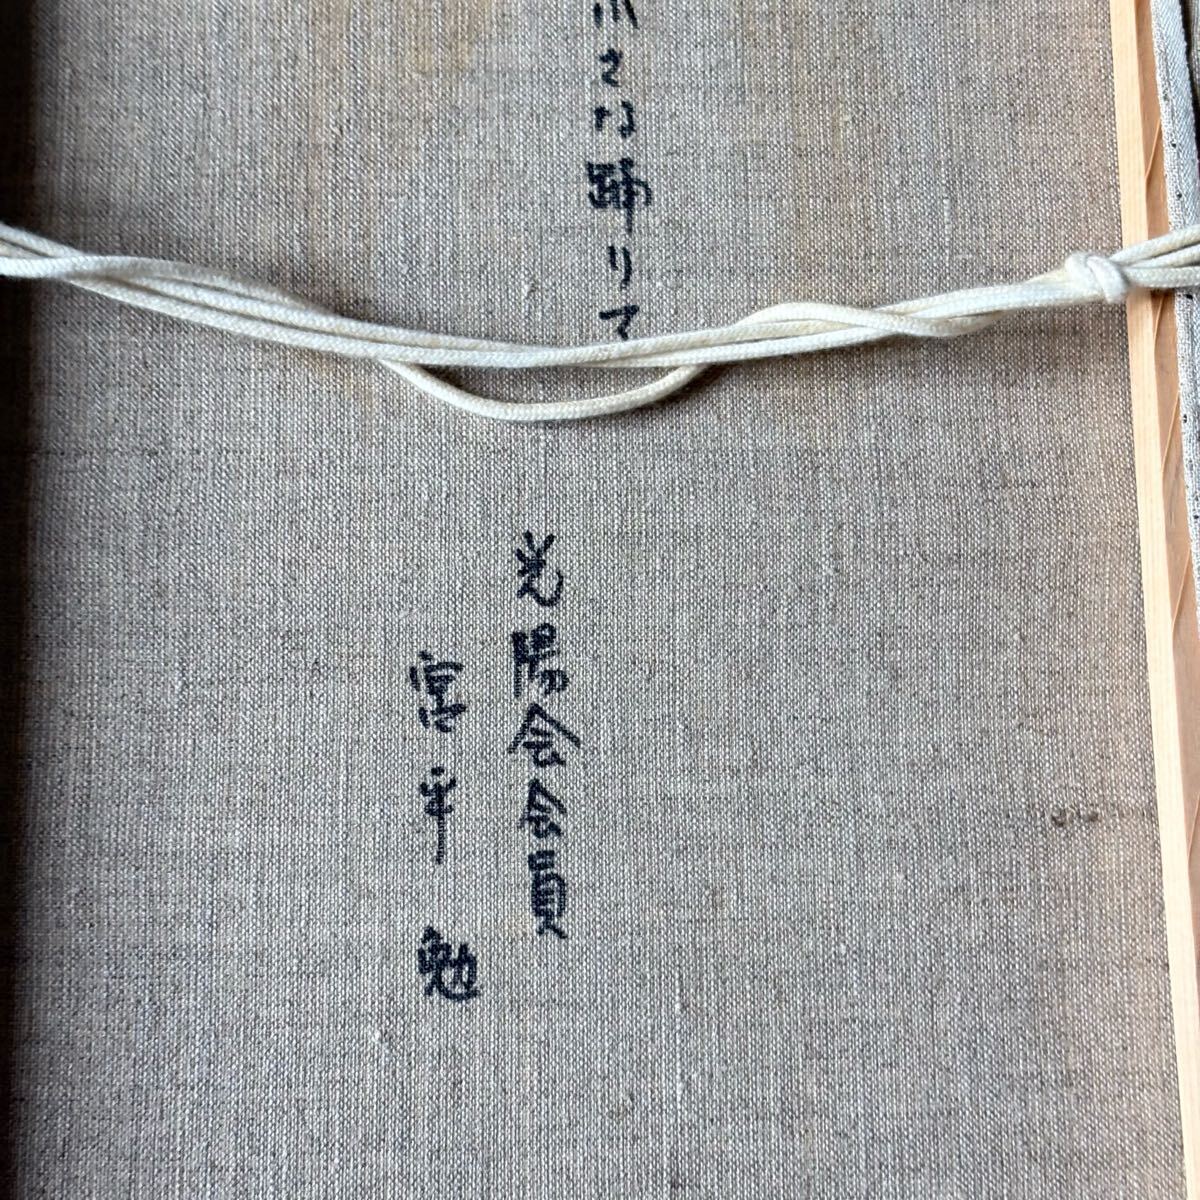 小さな踊りマ
光陽会会員
宮平 勉